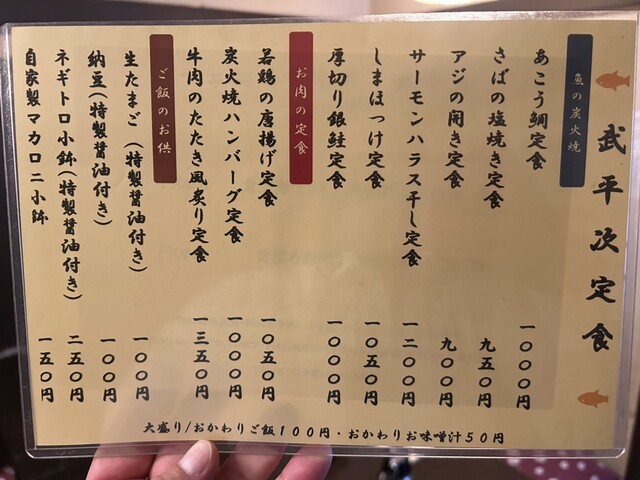 武平次定食
魚の炭火焼
あこう鯛定食 一〇〇〇円
さばの塩焼き定食 九五〇円
アジの開き定食 九〇〇円
サーモンハラス干し定食 一二〇〇円
しまほっけ定食 一〇五〇円
厚切り銀鮭定食 一〇〇〇円
お肉の定食
若鶏の唐揚げ定食 一〇五〇円
炭火焼ハンバーグ定食 一〇〇〇円
牛肉のたたき風炙り定食 一三五〇円
ご飯のお供
生たまご(特製醤油付き) 一〇〇円
納豆(特製醤油付き) 一〇〇円
ネギトロ小鉢(特製醤油付き) 二五〇円
自家製マカロニ小鉢 一五〇円
大盛り/おかわりご飯100円・おかわりお味噌汁50円